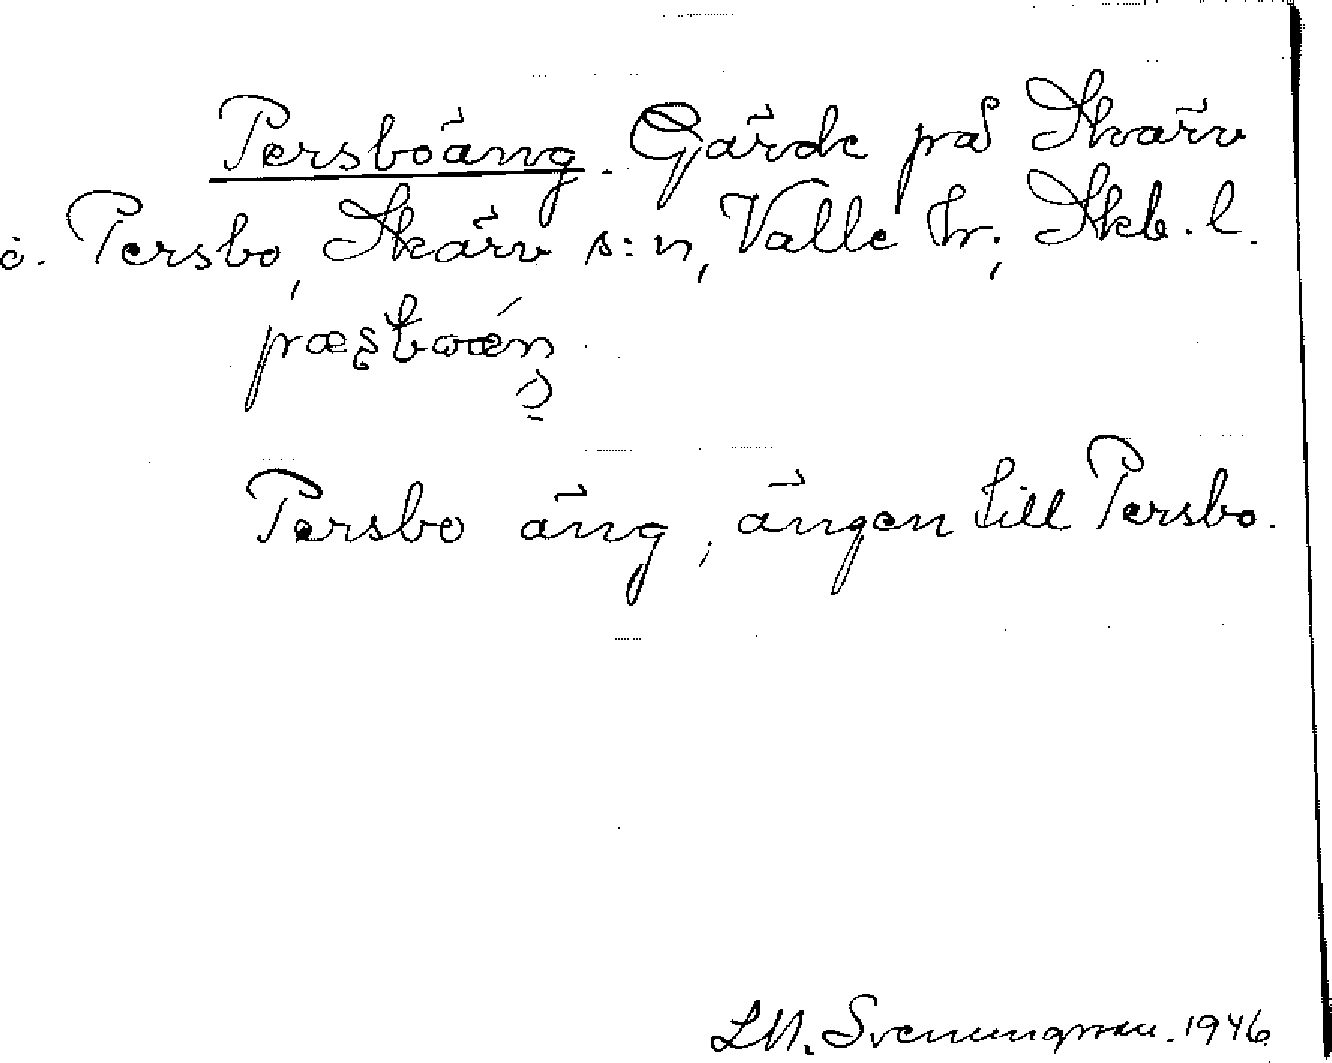 Persboäng. Gärde på Skärv
o. Persbo, Skärv s:n, Valle hr; Skb. l.
Persbo äng, ängen till Persbo.
LM. Svenungsson. 1946